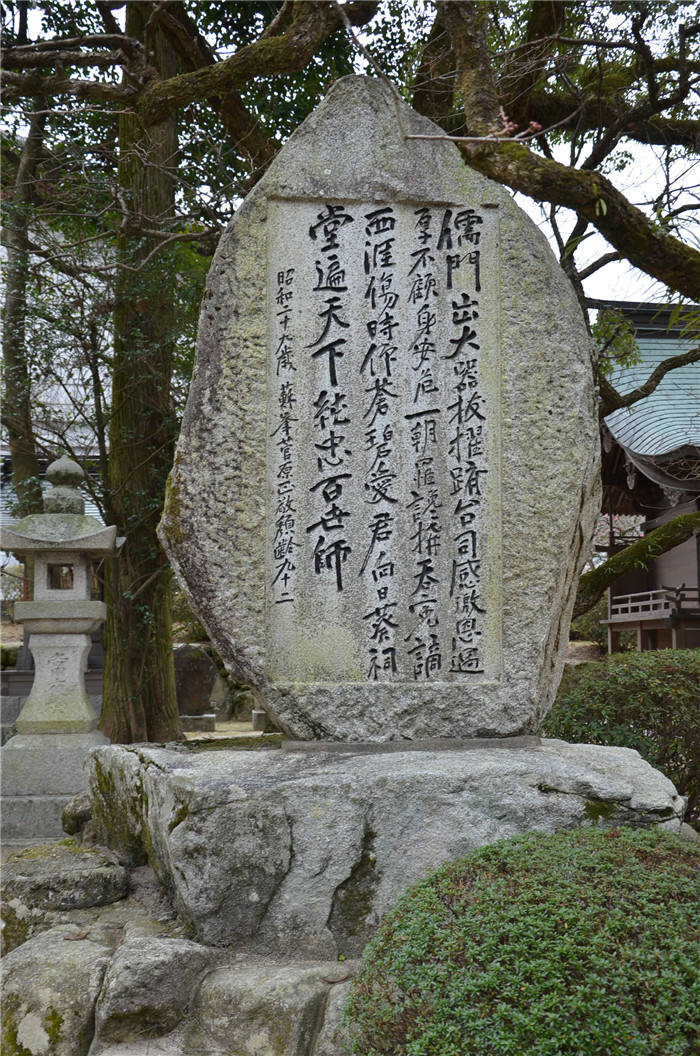 儒門出大器拔擢躋台司感激恩遇
厚不顧身安危一朝罹讒搆吞冤謫
西涯傷時作蒼碧愛君向日葵祠
堂遍天下純忠百世師
昭和二十九歲 蘇峯菅原正敬頽齡九十二